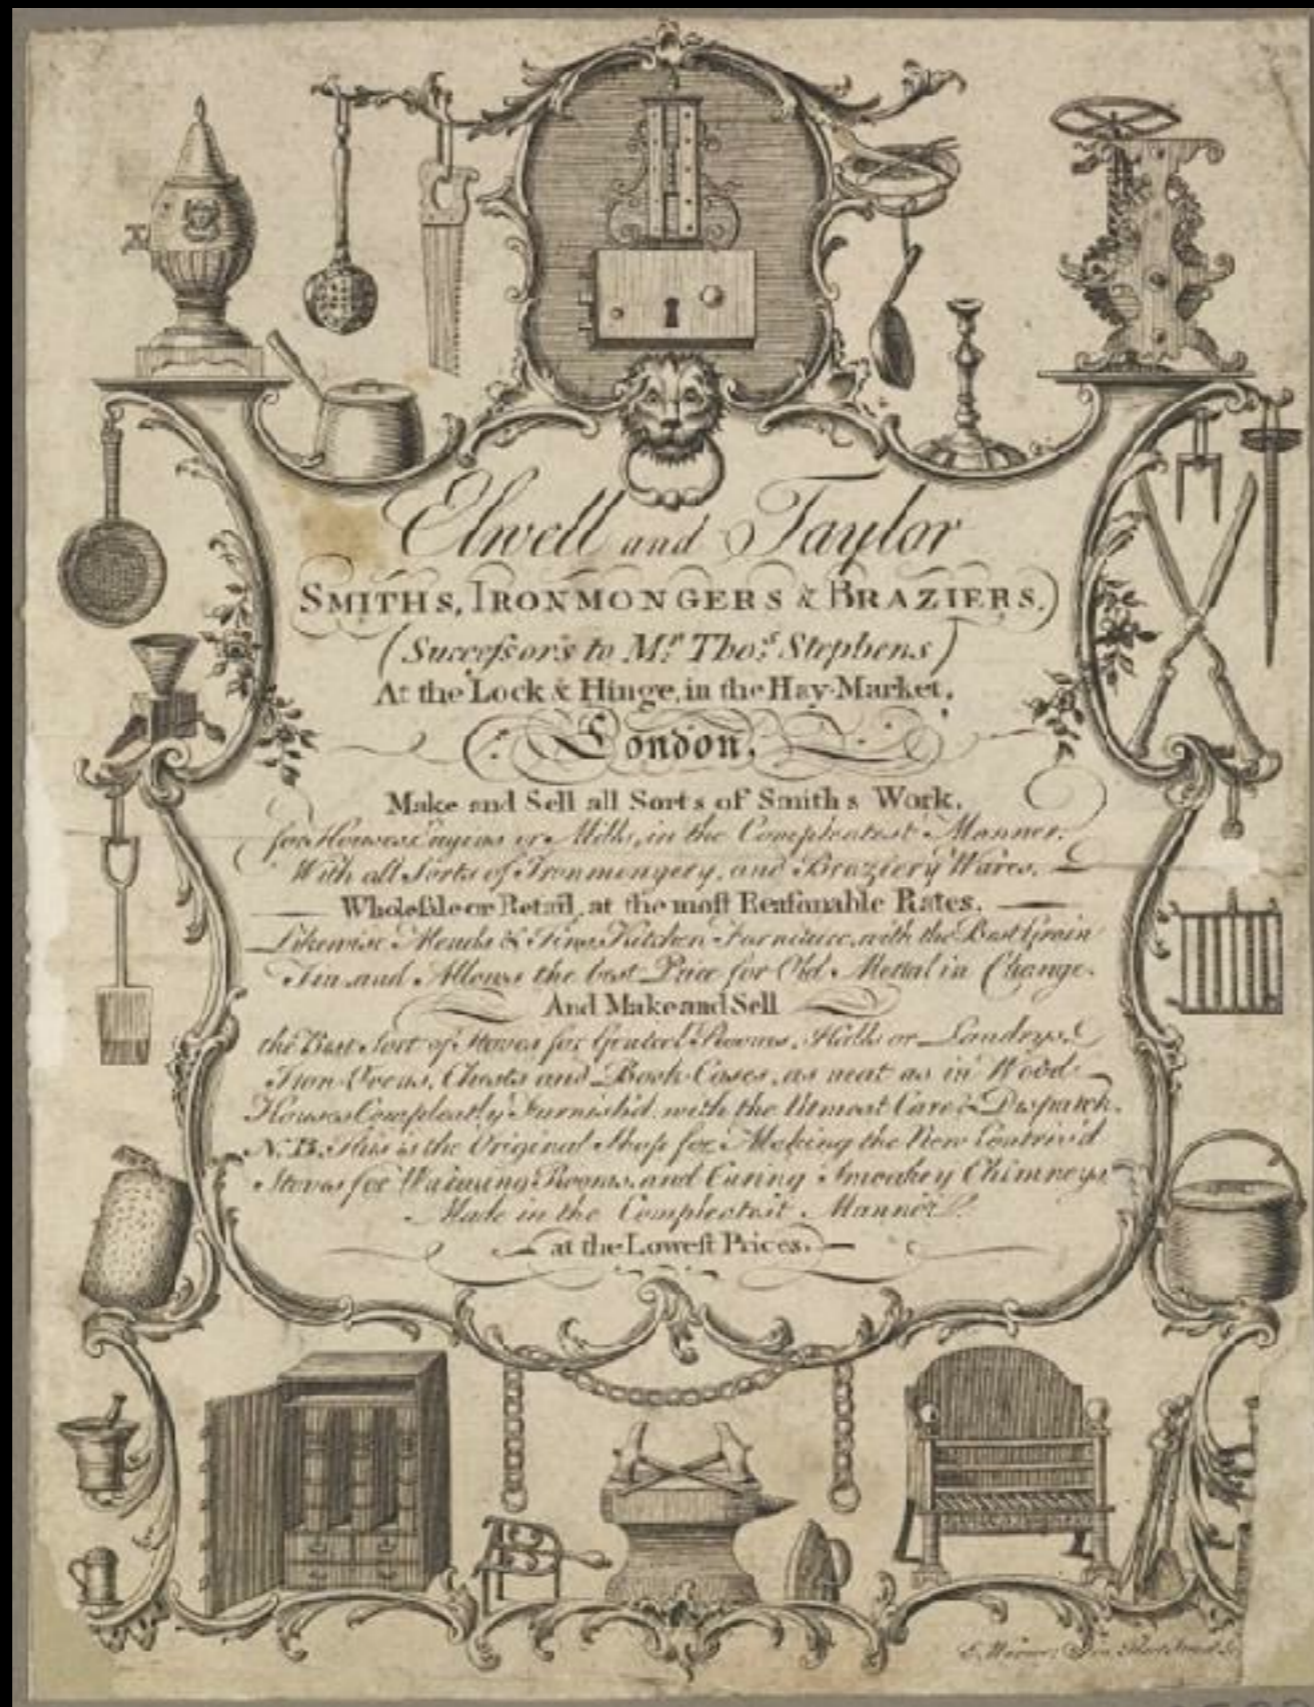 Elwell and Taylor
SMITHS, IRONMONGERS & BRAZIERS,
(Succeſsors to Mr. Thos. Stephens)
At the Lock & Hinge, in the Hay-Market,
London,
Make and Sell all Sorts of Smiths Work,
for Houses Engins or Mills, in the Compleatest Manner.
With all Sorts of Ironmongery, and Braziery Wares,
Wholeſale or Retail, at the moſt Reaſonable Rates.
Likewise Mends & Tins Kitchen Furniture, with the Best Grain
Tin and Allows the best Price for Old Mettal in Change.
And Make and Sell
the Best Sort of Stoves for Genteel Rooms, Halls or Landrys.
Iron Ovens, Chests and Book Cases, as neat as in Wood
Houses Compleatly Furnish'd, with the Utmost Care & Dispatch.
N.B. This is the Original Shop for Making the New Contriv'd
Stoves for Warming Rooms, and Curing Smoakey Chimneys
Made in the Compleatest Manner
at the Loweſt Prices.
Warner